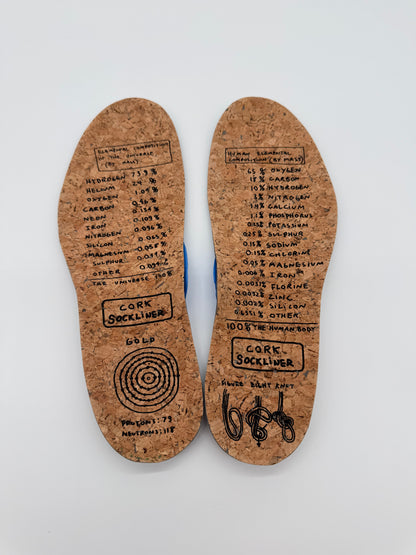 ELEMENTAL COMPOSITION
OF THE UNIVERSE
(BY MASS)
HYDROGEN 73.9 %
HELIUM 24 %
OXYGEN 1.04 %
CARBON 0.46 %
NEON 0.134 %
IRON 0.109 %
NITROGEN 0.096 %
SILICON 0.065 %
MAGNESIUM 0.058 %
SULPHUR 0.044 %
OTHER
THE UNIVERSE 100%
CORK
SOCKLINER
GOLD
PROTONS: 79
NEUTRONS: 118
HUMAN ELEMENTAL
COMPOSITION (BY MASS)
65 % OXYGEN
18% CARBON
10% HYDROGEN
3% NITROGEN
CALCIUM
1.1% PHOSPHORUS
POTASSIUM
0.25 % SULPHUR
0.15% SODIUM
0.15% CHLORINE
0.05% MAGNESIUM
0.006% IRON
FLORINE
0.0032% ZINC
0.002% SILICON
OTHER
100% THE HUMAN BODY
CORK
SOCKLINER
BIGHT KNOT